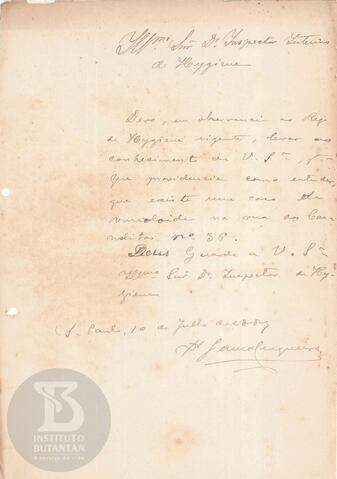 Illmo. Snr. Dr. Inspector Interino
de Hygiene
Devo, em observancia ao Reg.
de Hygiene vigente, levar ao
conhecimento de V. Sa.,
que providencie como entender,
que existe um caso de
varioloide na rua dos
no 38.
Deus Guarde a V. Sa.
Illmo. Snr. Dr. Inspector de Hy
giene
S. Paulo, 10 de Julho de
INSTITUTO
BUTANTAN
A serviço da vida